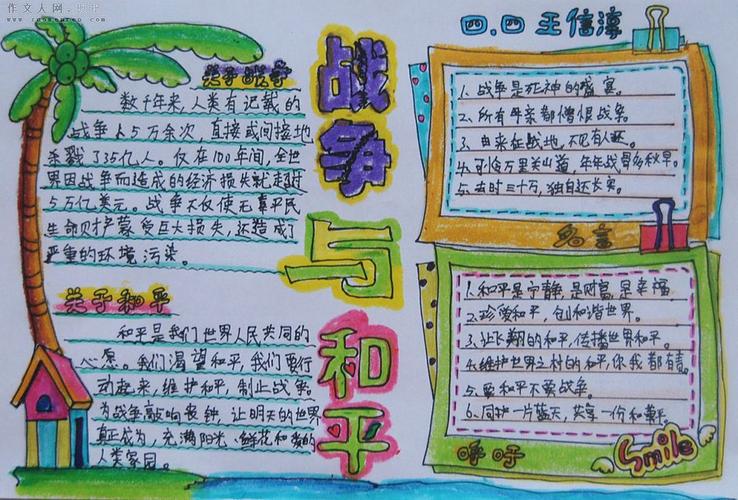 作文大网
四、四 王信淳
战争与和平
关于战争
数千年来，人类有记载的
战争占5万余次，直接或间接地
杀戮了35亿人。仅在100年间，全世
界因战争而造成的经济损失就超过
5万亿美元。战争不仅使无辜平民
生命财产蒙受巨大损失，还造成了
严重的环境污染。
关于和平
和平是我们世界人民共同的
心愿。我们渴望和平，我们要行
动起来，维护和平，制止战争。
为战争敲响丧钟，让明天的世界
真正成为，充满阳光、鲜花和爱的
人类家园。
1、战争是死神的盛宴。
2、所有母亲都憎恨战争。
3、由来征战地，不见有人还。
4、可怜万里关山道，年年战骨多秋草。
5、去时三十万，独自还长安。
名言
1、和平是宁静，是财富，是幸福
2、珍爱和平，创和谐世界。
3、让飞翔的和平，传播世界和平。
4、维护世界之村的和平，你我都有责。
5、要和平不要战争。
6、同护一片蓝天，共享一份和平。
呼吁
Smile